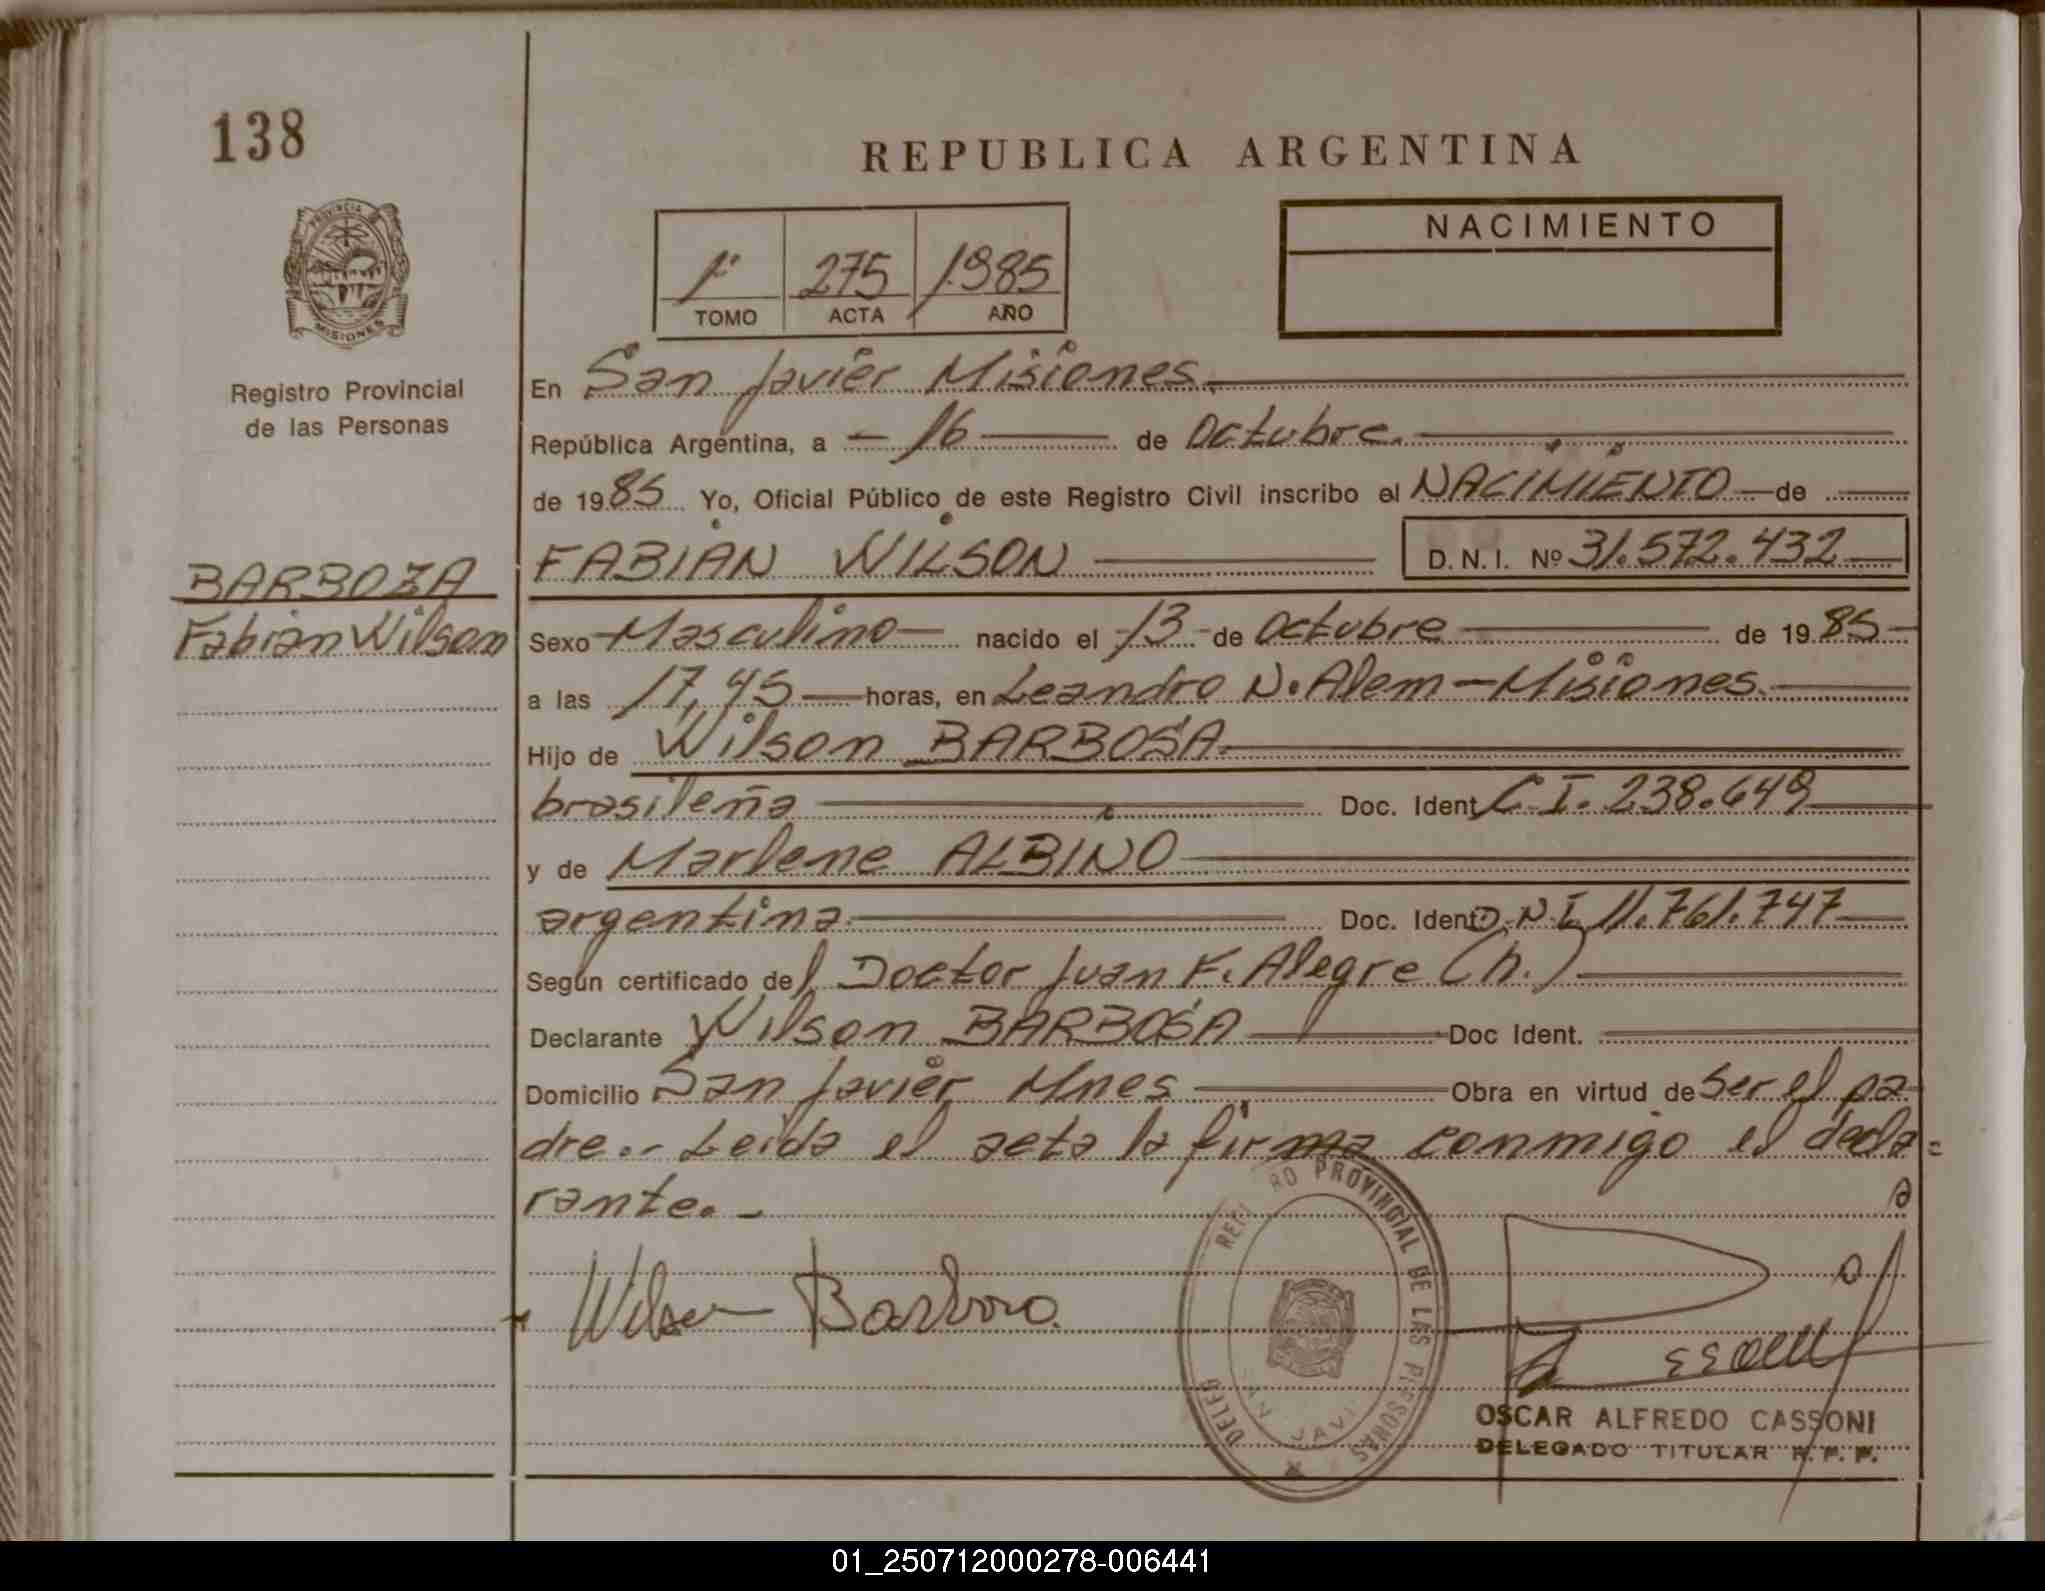 138
REPUBLICA ARGENTINA
NACIMIENTO
1º 275 1985
TOMO ACTA AÑO
PROVINCIA
MISIONES
Registro Provincial
de las Personas
En San Javier Misiones.
República Argentina, a 16 de Octubre.
de 1985 Yo, Oficial Público de este Registro Civil inscribo el NACIMIENTO de
FABIAN WILSON D.N.I. Nº 31.572.432
BARBOZA
Fabian Wilson
Sexo Masculino nacido el 13 de Octubre de 1985
a las 17,45 horas, en Leandro N. Alem - Misiones.
Hijo de Wilson BARBOSA
brasileña Doc. Ident C.I. 238.649
y de Marlene ALBINO
argentina Doc. Ident D.N.I 11.761.747
Según certificado del Doctor Juan F. Alegre (h.)
Declarante Wilson BARBOSA Doc Ident.
Domicilio San Javier Mnes Obra en virtud de ser el pa-
dre.- Leida el acta la firma conmigo el decla=
rante.-
Wilson Barboza
REGI RO PROVINCIAL DE LAS PERSONAS
DELEG
SAN JAVI
OSCAR ALFREDO CASSONI
DELEGADO TITULAR R.P.P.
01_250712000278-006441